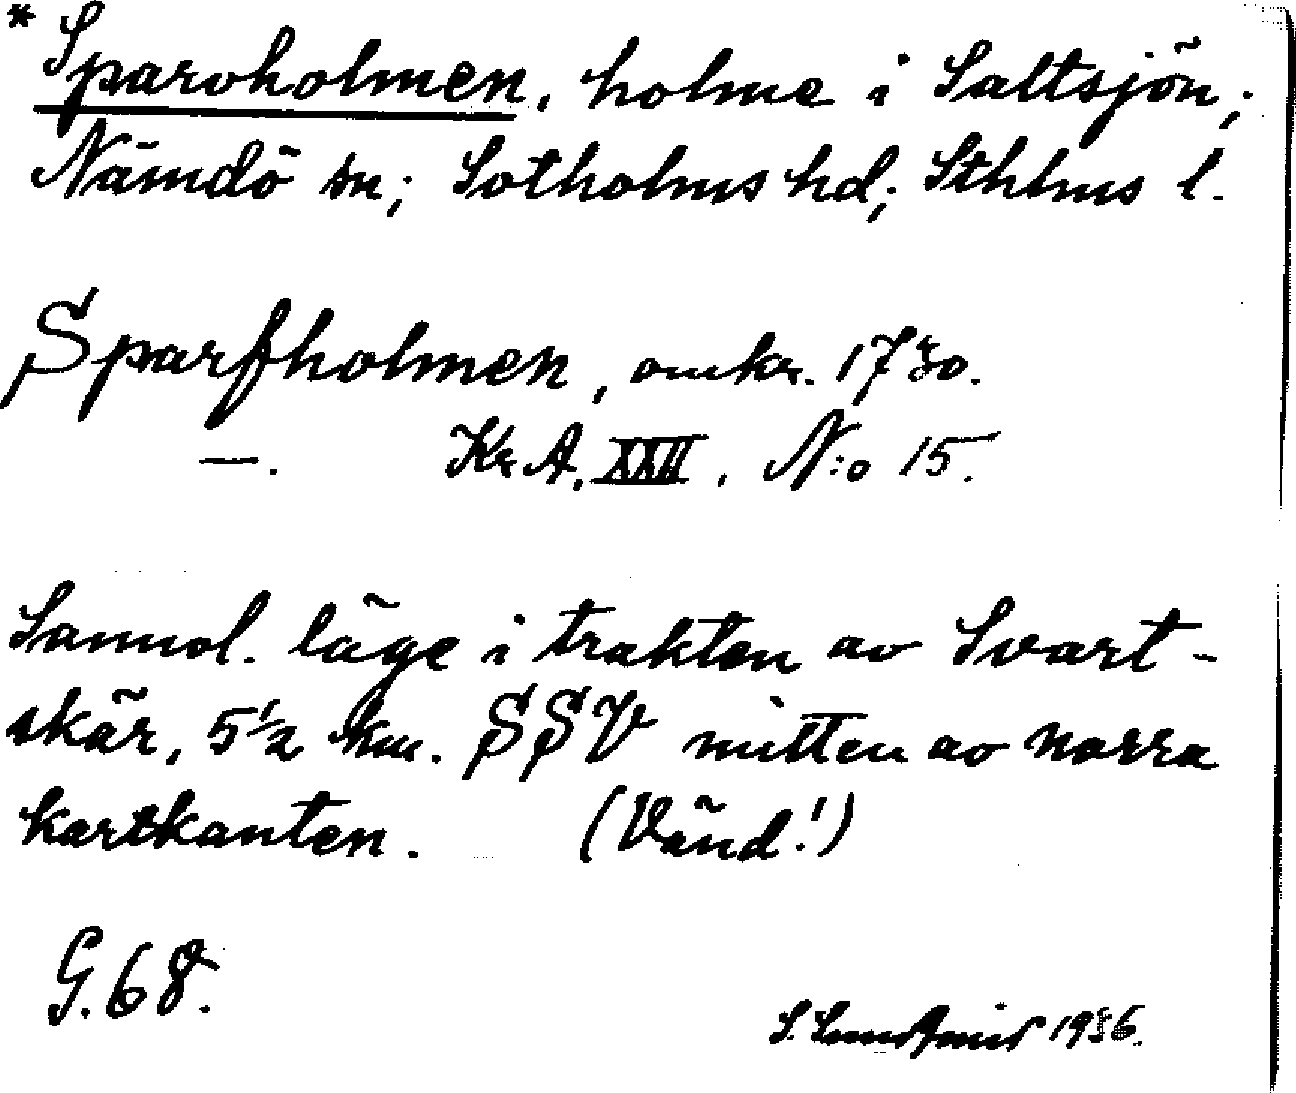 * Sparvholmen, holme i Saltsjön;
Nämdö sn; Sotholms hd; Sthlms l.
Sparfholmen, omkr. 1730.
—. Kr. A. XXII, N:o 15.
Sannol. läge i trakten av Svart-
skär, 5½ km. SSV mitten av norra
kartkanten. (Vänd!)
G. 68.
S. 1936.